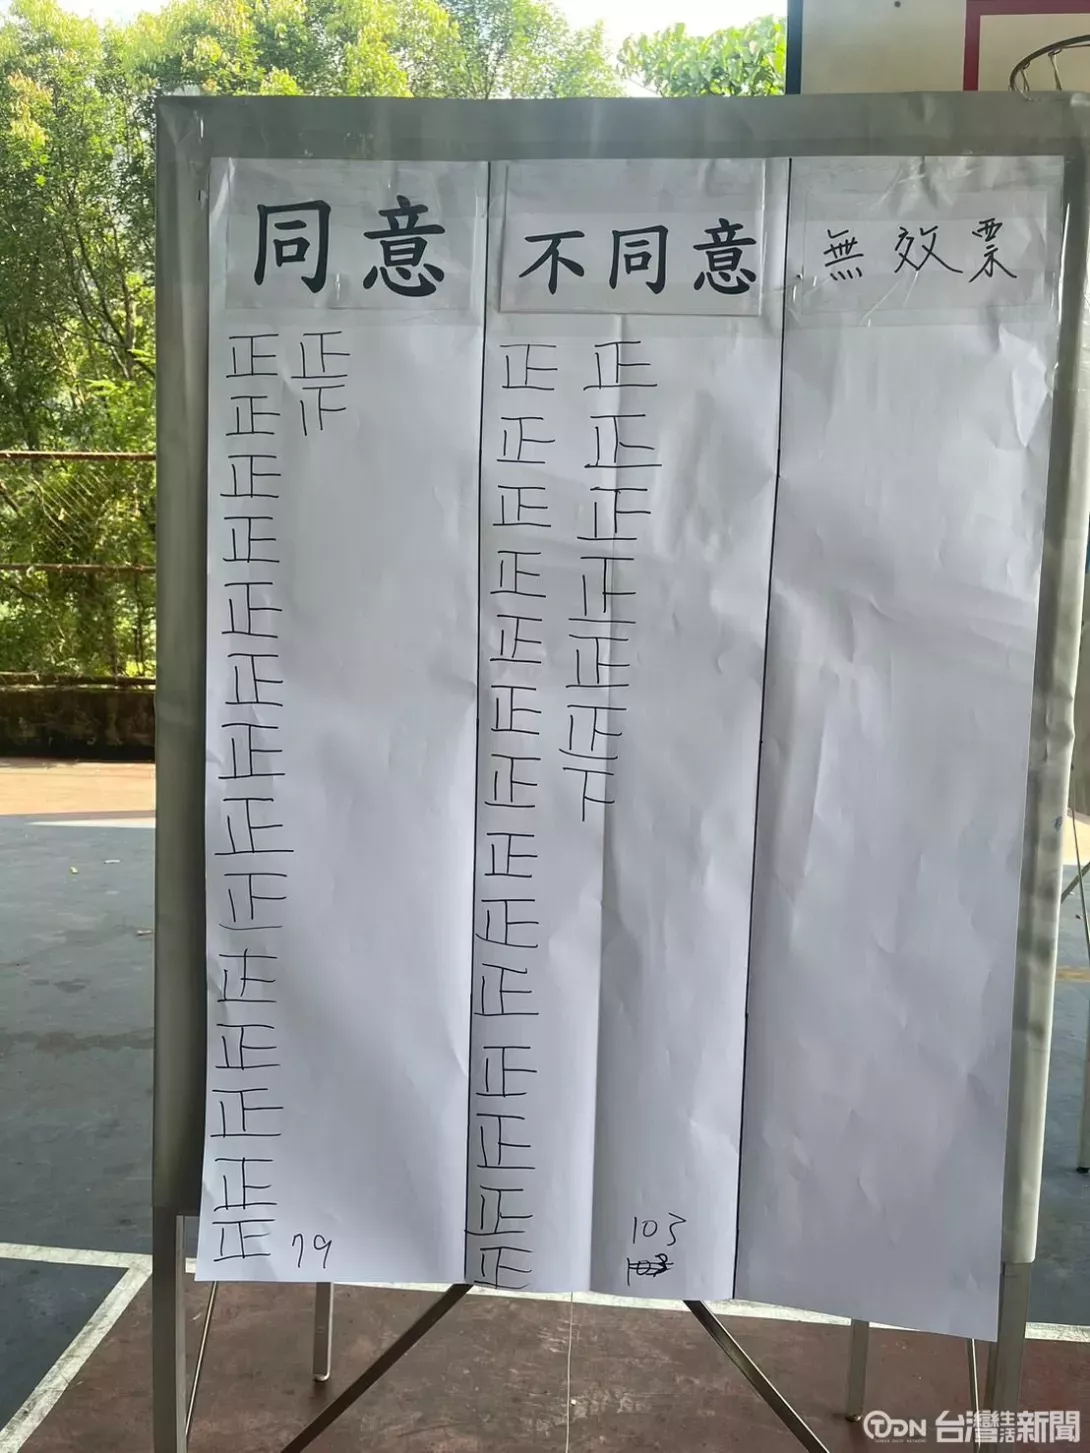 同意
正 正
正
正
正
正
正
正
正
正
正
正
正
正
正 79
不同意
正 正
正 正
正 正
正 正
正 正
正 正
正 下
正
正
正
正
正
正 103
正
無效票
TDN 台灣生活新聞